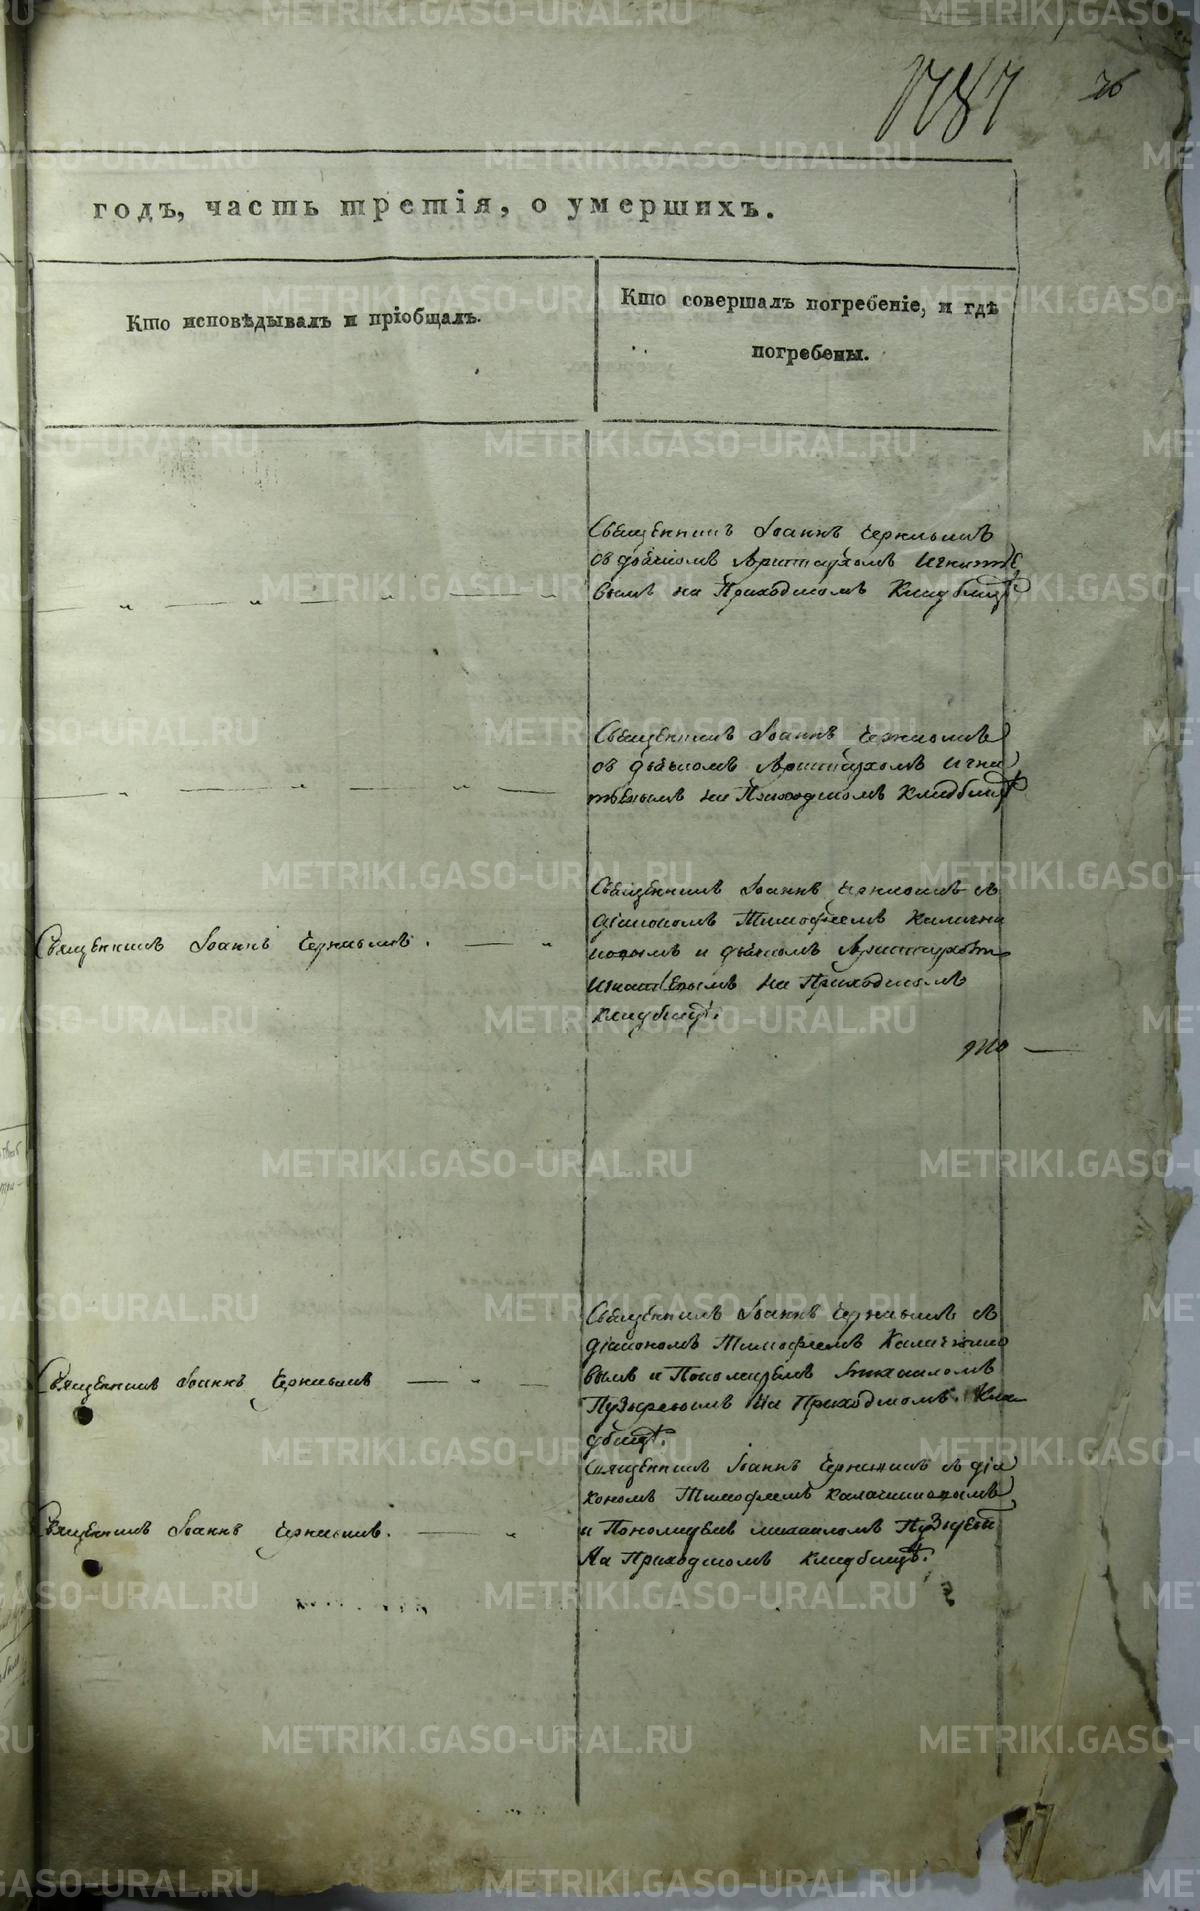 1787
76
годъ, часть третія, о умершихъ.
Кто исповѣдывалъ и пріобщалъ.
Кто совершалъ погребеніе, и гдѣ
погребены.
Священникъ Іоаннъ
съ дьячкомъ Аристархомъ Игнатье
вымъ на Приходскомъ Кладбищѣ
Священникъ Іоаннъ
съ дьячкомъ Аристархомъ Игна
тьевымъ на Приходскомъ Кладбищѣ
Священникъ Іоаннъ
Священникъ Іоаннъ съ
діакономъ Тимофеемъ
и дьячкомъ Аристархомъ
Игнатьевымъ на Приходскомъ
кладбищѣ.
Священникъ Іоаннъ
Священникъ Іоаннъ съ
діакономъ Тимофеемъ
вымъ и Пономаремъ Михаиломъ
Пузыревымъ на Приходскомъ Кла
дбищѣ.
Священникъ Іоаннъ
Священникъ Іоаннъ съ діа
кономъ Тимофеемъ
и Пономаремъ Михаиломъ
На Приходскомъ кладбищѣ.
METRIKI.GASO-URAL.RU